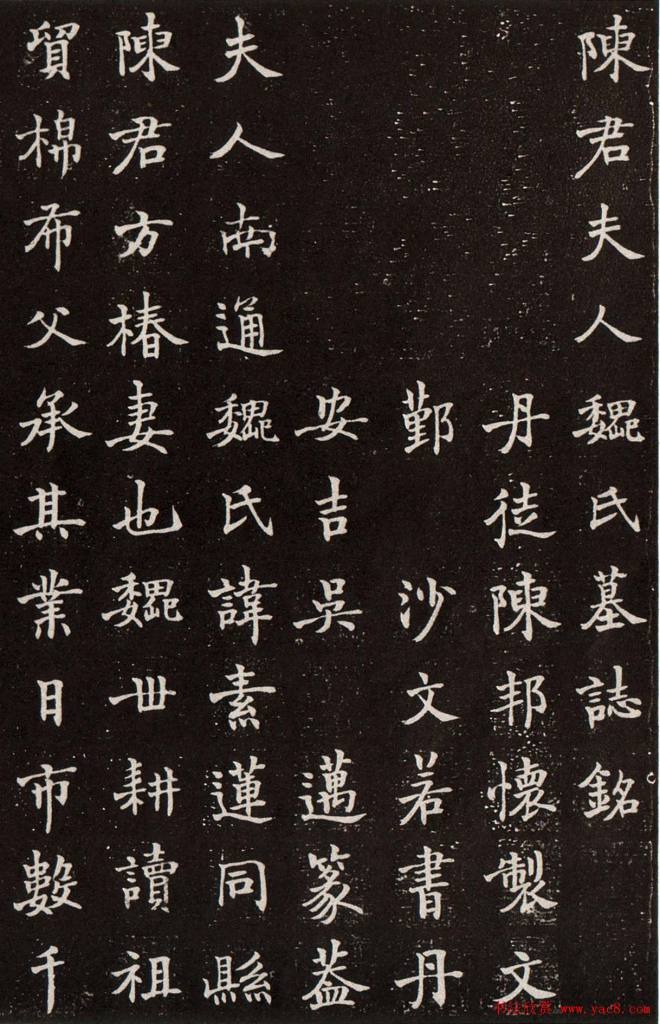 陳君夫人魏氏墓誌銘
丹徒陳邦懷製文
鄞 沙文若書丹
安吉吳 邁篆蓋
夫人南通魏氏諱素蓮同縣
陳君方椿妻也魏世耕讀祖
貿棉布父承其業日市數千
书法欣赏 www.yac8.com